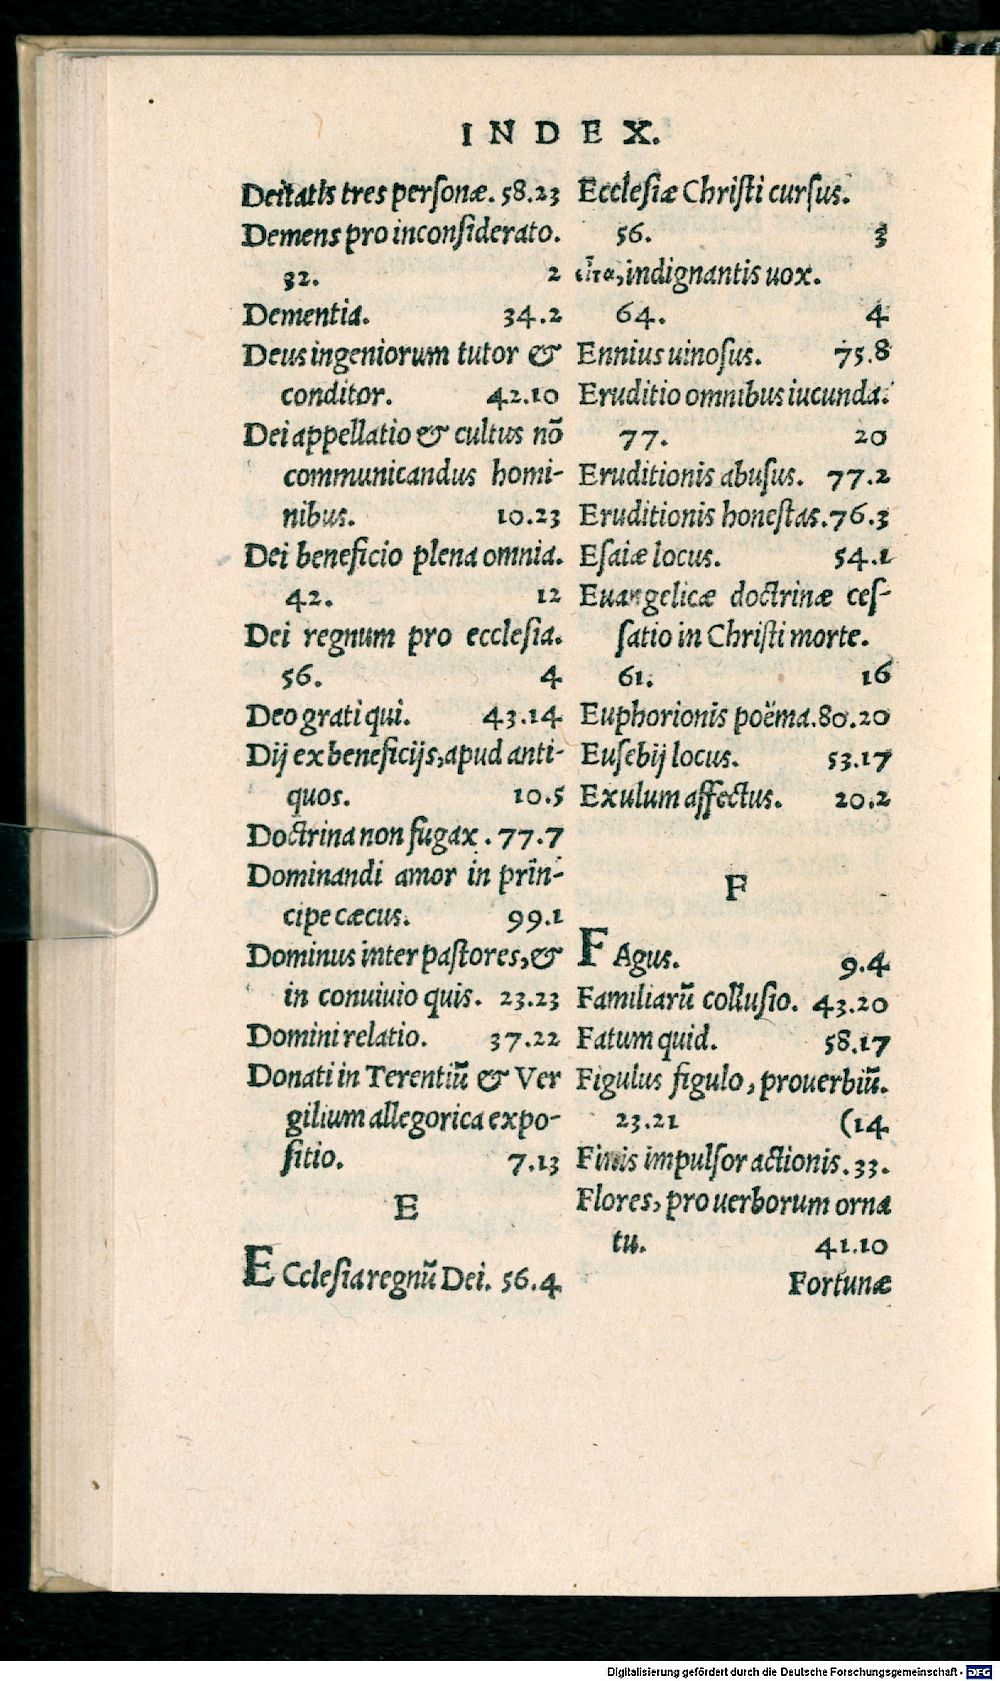 INDEX.
Deitatis tres personæ. 58.23
Demens pro inconsiderato.
32. 2
Dementia. 34.2
Deus ingeniorum tutor &
conditor. 42.10
Dei appellatio & cultus nõ
communicandus homi-
nibus. 10.23
Dei beneficio plena omnia.
42. 12
Dei regnum pro ecclesia.
56. 4
Deo grati qui. 43.14
Dij ex beneficijs, apud anti-
quos. 10.5
Doctrina non fugax. 77.7
Dominandi amor in prin-
cipe cæcus. 99.1
Dominus inter pastores, &
in conuiuio quis. 23.23
Domini relatio. 37.22
Donati in Terentiũ & Ver
gilium allegorica expo-
sitio. 7.13
E
ECclesia regnũ Dei. 56.4
Ecclesiæ Christi cursus.
56. 3
εἶτα, indignantis uox.
64. 4
Ennius uinosus. 75.8
Eruditio omnibus iucunda.
77. 20
Eruditionis abusus. 77.2
Eruditionis honestas. 76.3
Esaiæ locus. 54.1
Euangelicæ doctrinæ ces-
satio in Christi morte.
61. 16
Euphorionis poëma. 80.20
Eusebij locus. 53.17
Exulum affectus. 20.2
F
FAgus. 9.4
Familiarũ collusio. 43.20
Fatum quid. 58.17
Figulus figulo, prouerbiũ.
23.21 (14
Finis impulsor actionis. 33.
Flores, pro uerborum orna
tu. 41.10
Fortunæ
Digitalisierung gefördert durch die Deutsche Forschungsgemeinschaft - DFG